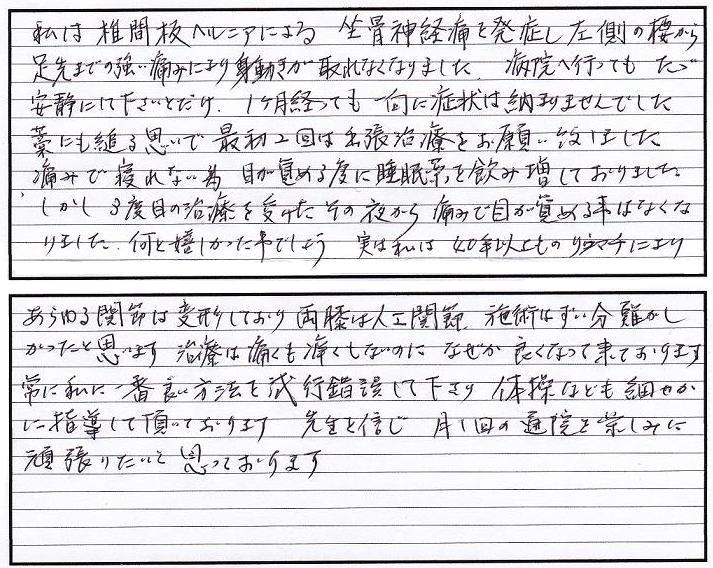 私は椎間板ヘルニアによる 坐骨神経痛を発症し左側の腰から
足先までの強い痛みにより身動きが取れなくなりました。病院へ行っても たゞ
安静にして下さいとだけ、1ヶ月経っても一向に症状は納まりませんでした
藁にも縋る思いで最初2回は出張治療をお願い致しました
痛みで寝れない為 目が覚める度に睡眠薬を飲み増しておりました。
しかし3度目の治療を受けたその夜から痛みで目が覚める事はなくな
りました。何と嬉しかった事でしょう 実は私は40年以上ものリウマチにより
あらゆる関節は変形しており両膝は人工関節 施術はずい分難かし
かったと思います 治療は痛くも痒くもないのに なぜか良くなって来ております
常に私に一番良い方法を試行錯誤して下さり 体操なども細やか
に指導して頂いております 先生を信じ 月1回の通院を楽しみに
頑張りたいと思っております